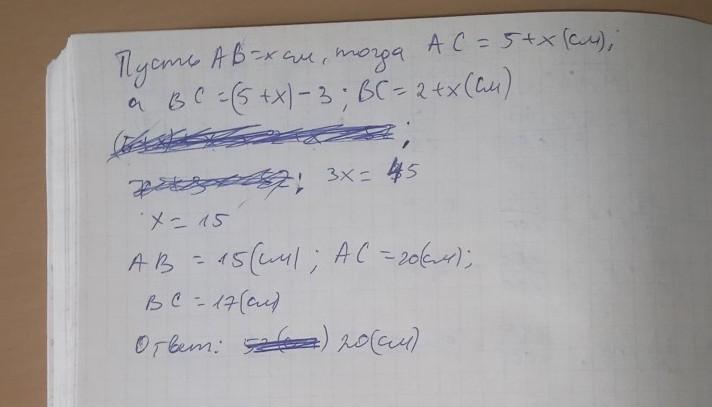 Пусть AB=x см, тогда AC = 5+x(см);
а BC =(5+x)-3; BC= 2+x(см)
;
; 3x= 45
x= 15
AB = 15(см); AC =20(см);
BC = 17(см)
Ответ: 20(см)